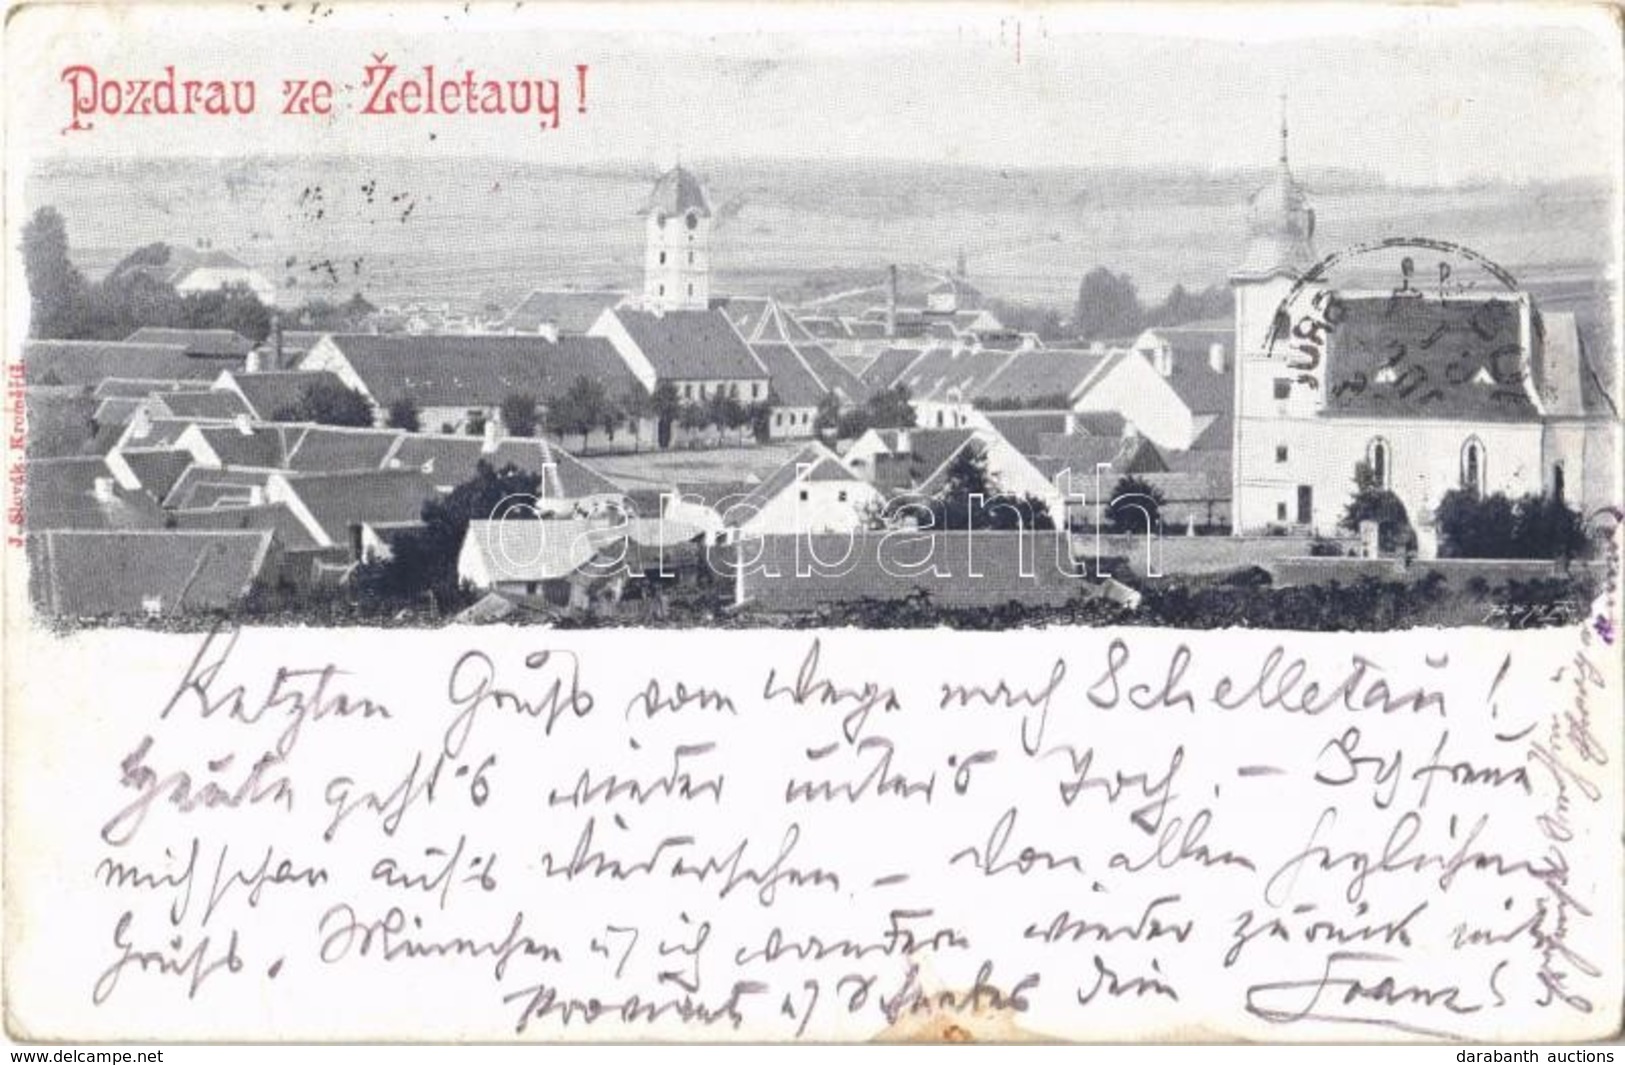 Pozdrav ze Želetavy!
J. Slovák, Kroměříž.
darabanth
Letzten Gruss vom Wege nach Schelletau!
Heute geht's wieder unter's Joch. – Ich freue
mich schon auf's Wiedersehen – Von allen herzlichen
Gruss, Münnchen u ich wandern wieder zurück mit
Proviant u dein Franz
www.delcampe.net
darabanth auctions